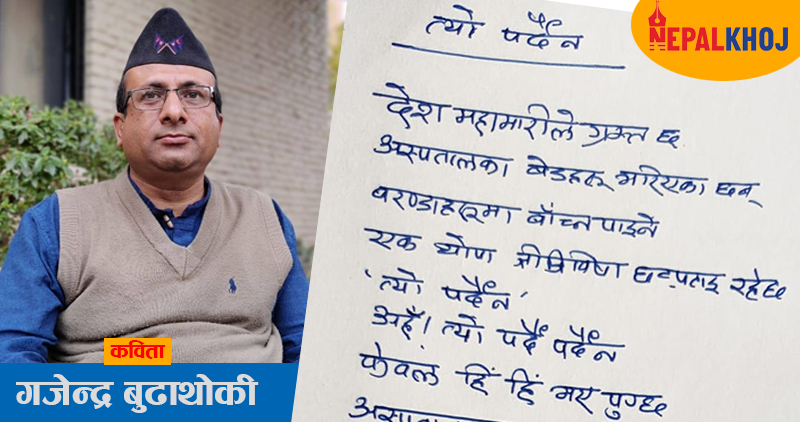 NEPALKHOJ
त्यो पर्दैन
देश महामारीले ग्रस्त छ
अस्पतालका बेडहरू भरिएका छन्
बरण्डाहरूमा बाँच्न पाइने
एक थोपा जिजीविषा छटपटाइ रहेछ
'त्यो पर्दैन'
अहँ। त्यो पर्दै पर्दैन
केवल हिँ हिँ भए पुग्छ
कविता
गजेन्द्र बुढाथोकी